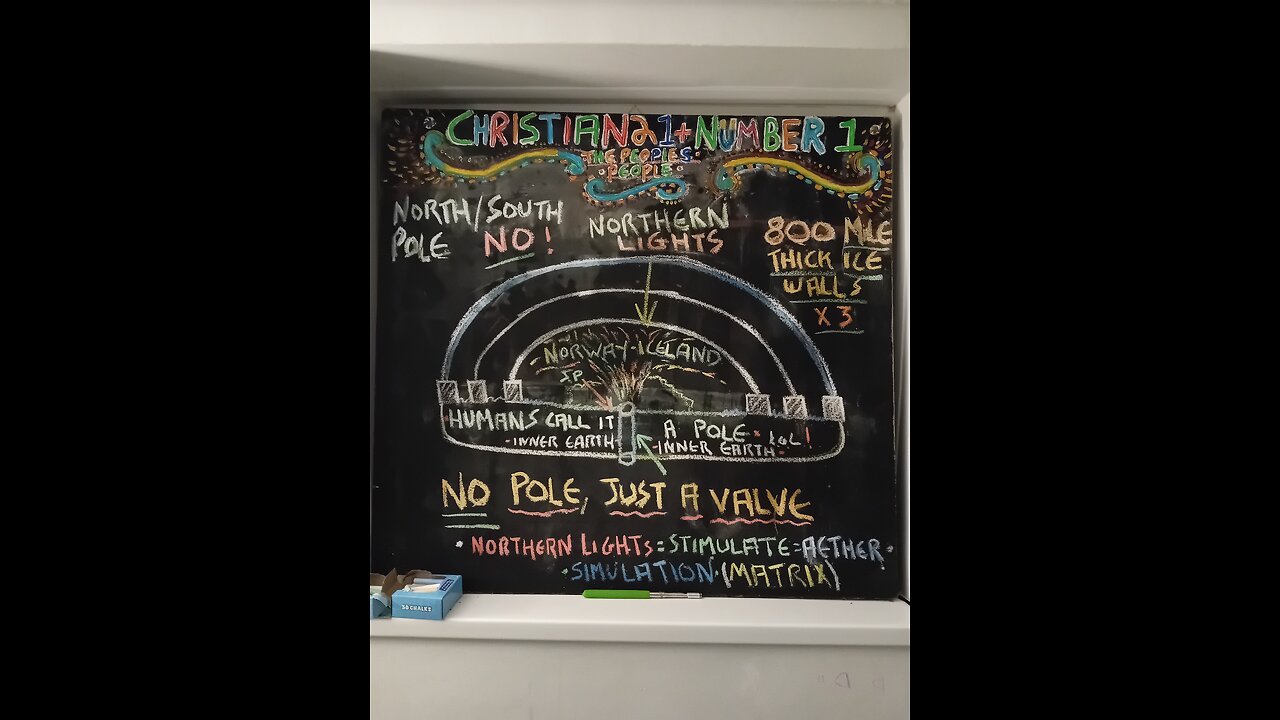 CHRISTIAN21+NUMBER 1
THE PEOPLES
PEOPLE
NORTH/SOUTH
POLE NO!
NORTHERN
LIGHTS
800 MILE
THICK ICE
WALLS
X 3
NORWAY-ICELAND
HUMANS CALL IT
-INNER EARTH
A POLE. LOL!
-INNER EARTH-
NO POLE, JUST A VALVE
• NORTHERN LIGHTS=STIMULATE=AETHER•
•SIMULATION•(MATRIX)
30 CHALKS